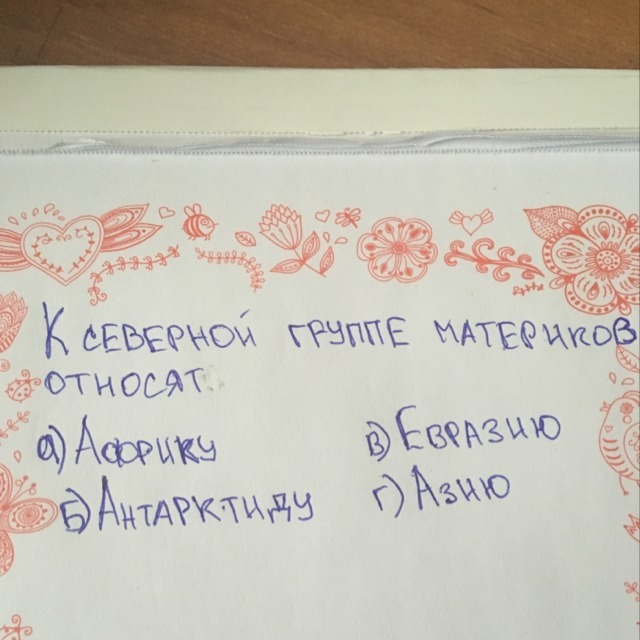 К СЕВЕРНОЙ ГРУППЕ МАТЕРИКОВ
ОТНОСЯТ
а) АФРИКУ
в) ЕВРАЗИЮ
б) АНТАРКТИДУ
г) АЗИЮ